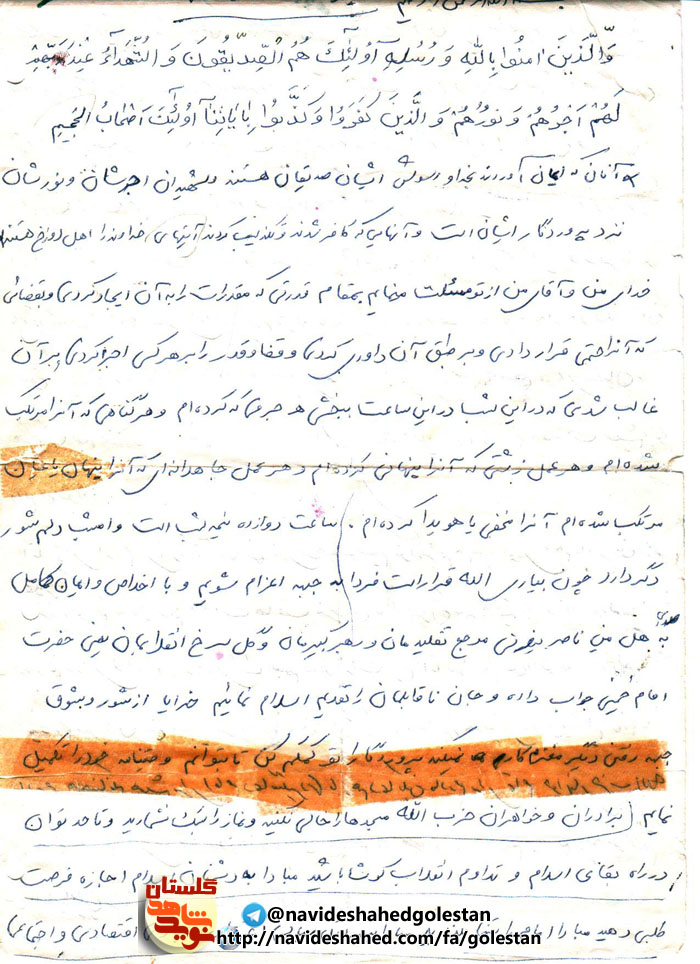 وَالَّذِينَ آمَنُوا بِاللَّهِ وَ رُسُلِهِ أُولَئِكَ هُمُ الصِّدِّيقُونَ وَ الشُّهَدَاءُ عِنْدَ رَبِّهِمْ
لَهُمْ أَجْرُهُمْ وَ نُورُهُمْ وَ الَّذِينَ كَفَرُوا وَ كَذَّبُوا بِآيَاتِنَا أُولَئِكَ أَصْحَابُ الْجَحِيمِ
آنان که ایمان آوردند بخدا و رسولش ایشان صدیقان هستند و شهیدان اجرشان و نورشان
نزد پروردگار ایشان است و آنهایی که کافر شدند و تکذیب کردند آیتهای خداوند را اهل دوزخ هستند
خدای من و آقای من از تو مسئلت مینمایم بمقام قدرتی که مقدرات را به آن ایجاد کردی و بقضائی
که آنرا حتمی قرار دادی و بر طبق آن داوری کردی و قضا و قدر را بر هر کس اجرا کردی بر آن
غالب شدی که در این شب و در این ساعت ببخشی هر جرمی که کرده‌ام و هر گناهی که آنرا مرتکب
شده‌ام و هر عمل زشتی که آنرا پنهانی کرده‌ام و هر عمل جاهلانه‌ای که آنرا پنهان یا عیان
مرتکب شده‌ام آنرا مخفی یا هویدا کرده‌ام . ساعت دوازده نیمه شب است و امشب دلم شور
دگر دارد چون بیاری الله قرار است فردا به جبهه اعزام شویم و با اخلاص و ایمان کامل
به صدای هل من ناصر ینصرنی مرجع تقلیدمان و رهبر کبیرمان و گل سرخ انقلابمان یعنی حضرت
امام خمینی جواب داده و جان ناقابلمان را تقدیم اسلام نمائیم خدایا از شور و شوق
جبهه رفتن دگر مغزم کار نمیکند پروردگارا تو کمکم کن تا بتوانم وصیتنامه خود را تکمیل
نمایم . برادران و خواهران حزب الله مسجدها را خالی نکنید و نماز را سبک نشمارید و تا حد توان
در راه بقای اسلام و تداوم انقلاب کوشا باشید مبادا به دشمنان اسلام اجازه فرصت
طلبی دهید مبادا امام را اقتصادی و اجتماعی
گلستان
نوید شاهد
@navideshahedgolestan
http://navideshahed.com/fa/golestan